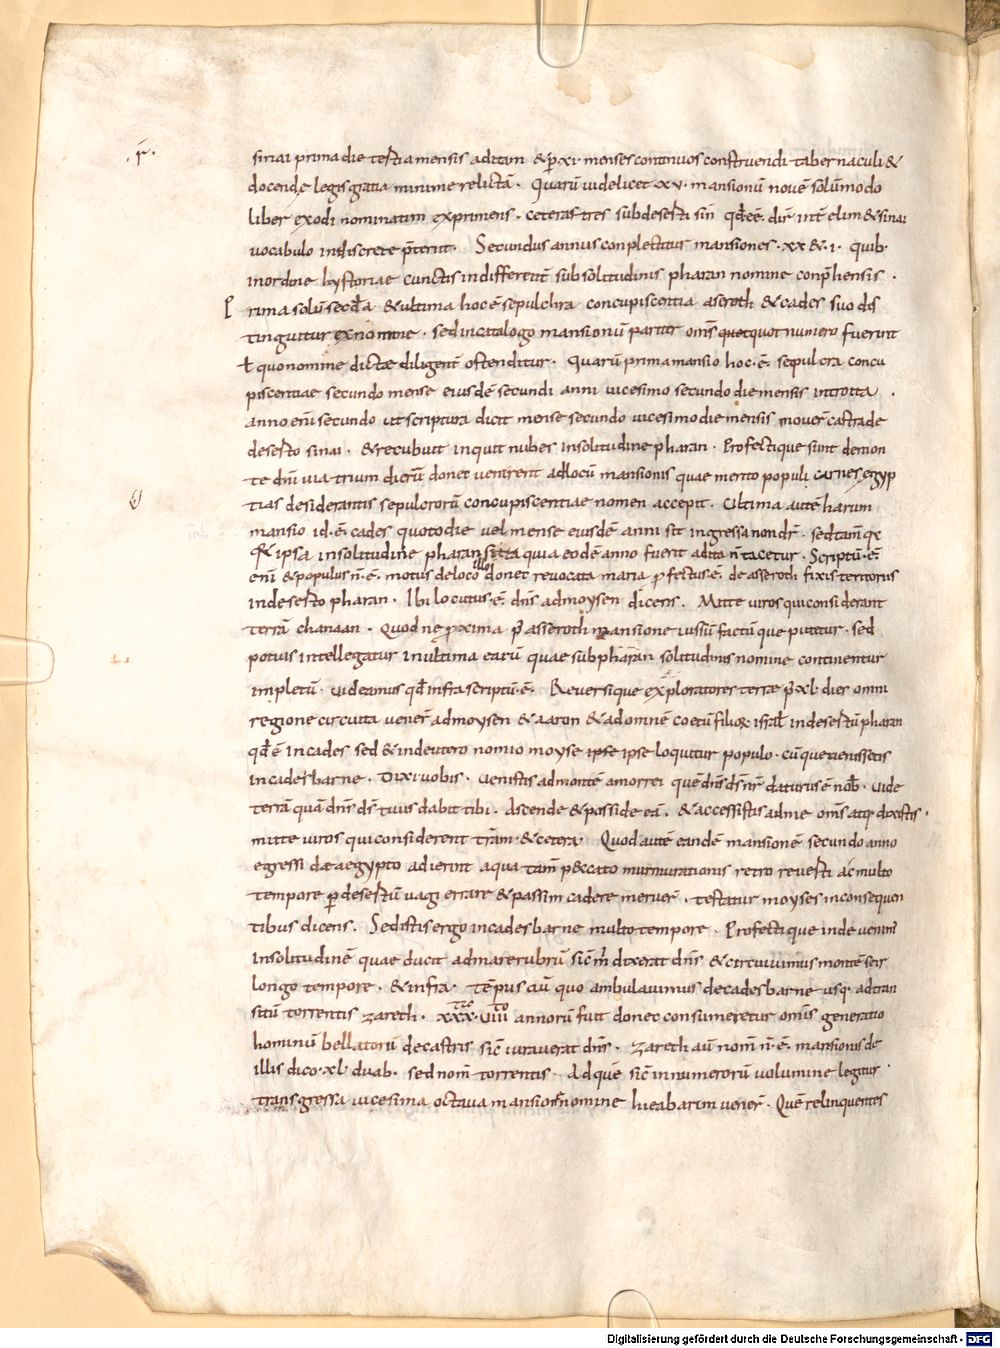 .r̄.
sinai prima die tertia mensis aditam & p̄ xi· menses continuos construendi tabernaculi &
docendę legis gratia minime relictā· Quarū videlicet ·xv· mansionū novē solummodo
liber exodi nominatim exprimens· ceteras tres subdeserti sin̄ qd̄ ē· dn̄r int̄ elim & sinai
vocabulo indiscrete p̄terit· Secundus annus conplectitur mansiones ·xx & i· quib·
in ordine hystoriae cunctis indifferent̄ sub solitudinis pharan nomine conp̄hensis ·
Prima solū sec̄da & ultima hoc ē sepulchra concupiscentia aseroth & cades suo dis
tinguitur ex nomine · sed in catalogo mansionū pariter om̄s quotquot numero fuerint
ł quo nomine dictae diligent̄ ostenditur· Quarū prima mansio hoc·ē· sepulcra concu
piscentiae secundo mense eiusdē secundi anni vicesimo secundo die mensis introita ·
anno enī secundo ut scriptura dicit mense secundo vicesimo die mensis mover̄ castra de
deserto sinai · & recubuit inquit nubes in solitudine pharan · Profectique sunt de mon
te dn̄i via trium dierū donec venirent ad locū mansionis quae merito populi carnes egyp
tias desiderantis sepulcrorū concupiscentiae nomen accepit · Ultima autē harum
mansio id·ē· cades quoto die vel mense eiusdē anni sit ingressa non dr̄· sed tam̄
ipsa in solitudine pharan sita quia eodē anno fuerit adita n̄ tacetur · Scriptū·ē·
enī & populus n̄·ē· motus de loco illo donec revocata maria pfectus·ē· de asseroth fixis tentoriis
in deserto pharan · Ibi locutus·ē· dn̄s ad moysen dicens · Mitte viros qui considerant
terrā chanaan · Quod ne proxima p̄ asseroth mansione iussū factū que putetur· sed
potius intellegatur in ultima earū quae sub pharan solitudinis nomine continentur
impletū· videamus qd̄ infra scriptū·ē· Reversique exploratores terrae p̄ xl· dies omni
regione circuita vener̄ ad moysen & aaron & ad omnē coetū filior̄ isrl̄ in desertū pharan
qd̄ ē in cades sed & in deuteronomio moyse ipse ipse loquitur populo · cū que venissetis
in cades barne · Dixi vobis · venistis ad montē amorrei quē dn̄s ds̄ nr̄ daturus ē nob̄· vide
terrā quā dn̄s ds̄ tuus dabit tibi · Ascende & posside eā · & accessistis ad me om̄s atq· dixistis·
mitte viros qui considerent trām & cetera· Quod autē eandē mansionē secundo anno
egressi de aegypto adierint aqua tam̄ p&cato murmurationis retro reversi ac multo
tempore p̄ desertū vagi errare & passim cadere meruer̄ · testatur moyses in consequen
tibus dicens · Sedistis ergo in cades barne multo tempore · Profectique inde venim̄
in solitudinē quae ducit ad mare rubrū sic̄ m̄ dixerat dn̄s & circuivimus montē seir
longo tempore · & infra · tēpus aū quo ambulavimus de cades barne usq· ad tran
sitū torrentis zareth · xxx·viii annorū fuit donec consumeretur om̄is generatio
hominū bellatorū de castris sic̄ iuraverat dn̄s · Zareth aū nom̄ n̄·ē· mansionis de
illis dico·xl· duab· sed nom̄ torrentis· Ad quē sic̄ in numerorū volumine legitur·
transgressa vicesima octava mansion̄ nomine hieabarim vener̄· Quē relinquentes